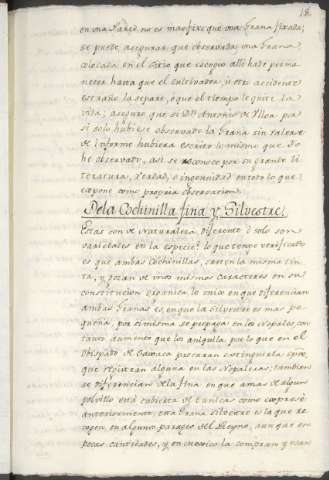 18.
en una Pared no es mas fixo que una Grana fixada;
se puede asegurar que observada una Grana
colocada en el sitio que escogio alli hasta perma
necerá hasta que el cultivador, ù otro accidente
extraño la separe, ò que el tiempo le quite la
vida; aseguro que si Dn. Antonio de Ulloa pa
si solo hubiese observado la Grana sin valerse
de informe hubiera escrito lo mismo que Yo
he observado, asi se reconoce por su grande li
teratura, verdad, è ingenuidad en todo lo que
expone como propria observacion.
De la Cochinilla fina y Silvestre.
Estas son de Naturaleza diferente ò solo son
variedades en la especie? lo que tengo verificado
es que ambas Cochinillas, dan la misma tin
ta, y gozan de unos mismos caracteres en su
constitucion organica lo unico en que diferencian
ambas Granas es, en que la Silvestre es mas pe
queña, por si misma se propaga en los Nopales, con
tanto aumento que los aniquila, por lo que en el
Obispado de Oaxaca procuran extinguirla, siempre
que registran alguna en las Nopaleras; tambien
se diferencian de la fina en que amas de algun
polvillo está cubierta de tunicas como expresè
anteriormente; esta Grana Silvestre es la que re
cogen en algunos parages del Reyno, aunque en
pocas cantidades, y en Mexico la compran y usan